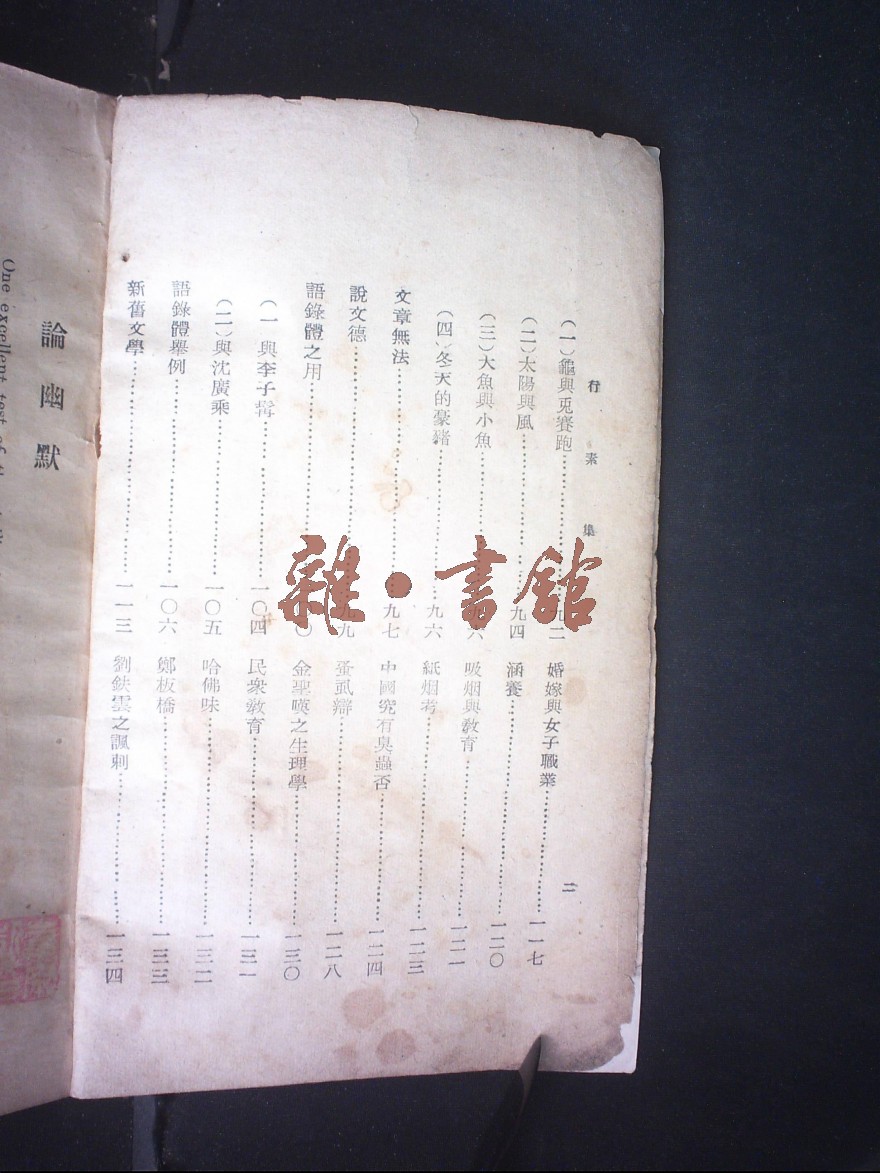 行素集
二
(一)龜與兎賽跑……九二
(二)太陽與風……九四
(三)大魚與小魚……六
(四)冬天的豪豬……九六
文章無法……九七
說文德……九九
語錄體之用……〇
(一)與李子……一〇四
(二)與沈廣乘……一〇五
語錄體舉例……一〇六
新舊文學……一一三
婚嫁與女子職業……一一七
涵養……一二〇
吸烟與敎育……一二一
紙烟考……一二三
中國究有臭蟲否……一二四
蚤虱辯……一二八
金聖嘆之生理學……一三〇
民衆敎育……一三一
哈佛味……一三二
鄭板橋……一三三
劉鉄雲之諷刺……一三四
論幽默
One excellent test of
雜·書館